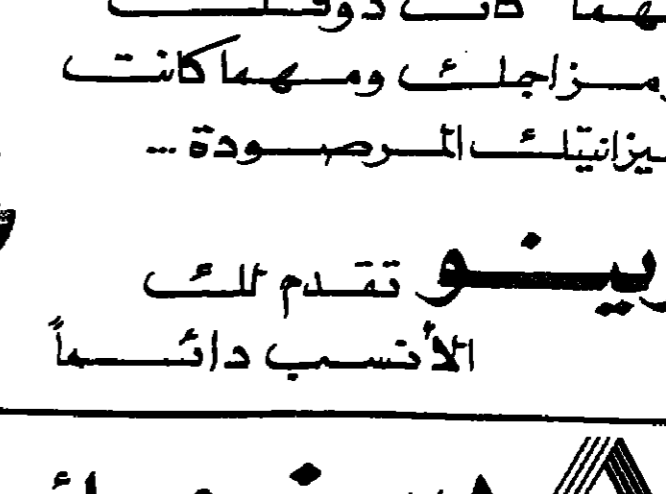 كانت ذوقك
ومزاجك ومهما كانت
ميزانيتك المرصودة ...
رينو تقدم لك
الأنسب دائماً